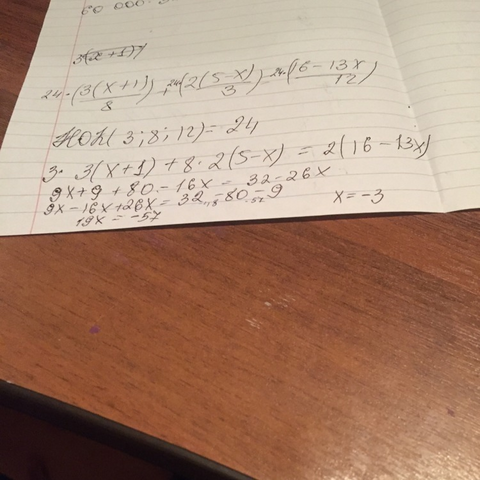 60 000
3(x+1)
24·(3(x+1)/8) + 24(2(5-x)/3) = 24·(16-13x/12)
НОК(3;8;12)=24
3·3(x+1)+8·2(5-x)=2(16-13x)
9x+9+80-16x=32-26x
9x-16x+26x=32-80-9
19x=-57 x=-3